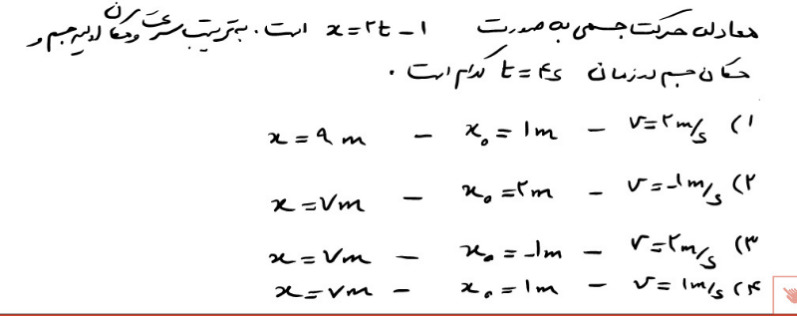 معادله حرکت جسمی به صورت x = ۲t − ۱ است. به ترتیب سرعت آن و مکان اولیه جسم و
مکان جسم در زمان t = ۴s کدام است.
۱) v = ۲ m/s − x₀ = ۱m − x = ۹ m
۲) v = −۱ m/s − x₀ = ۲m − x = ۷m
۳) v = ۲ m/s − x₀ = −۱m − x = ۷m
۴) v = ۱ m/s − x₀ = ۱m − x = ۷m